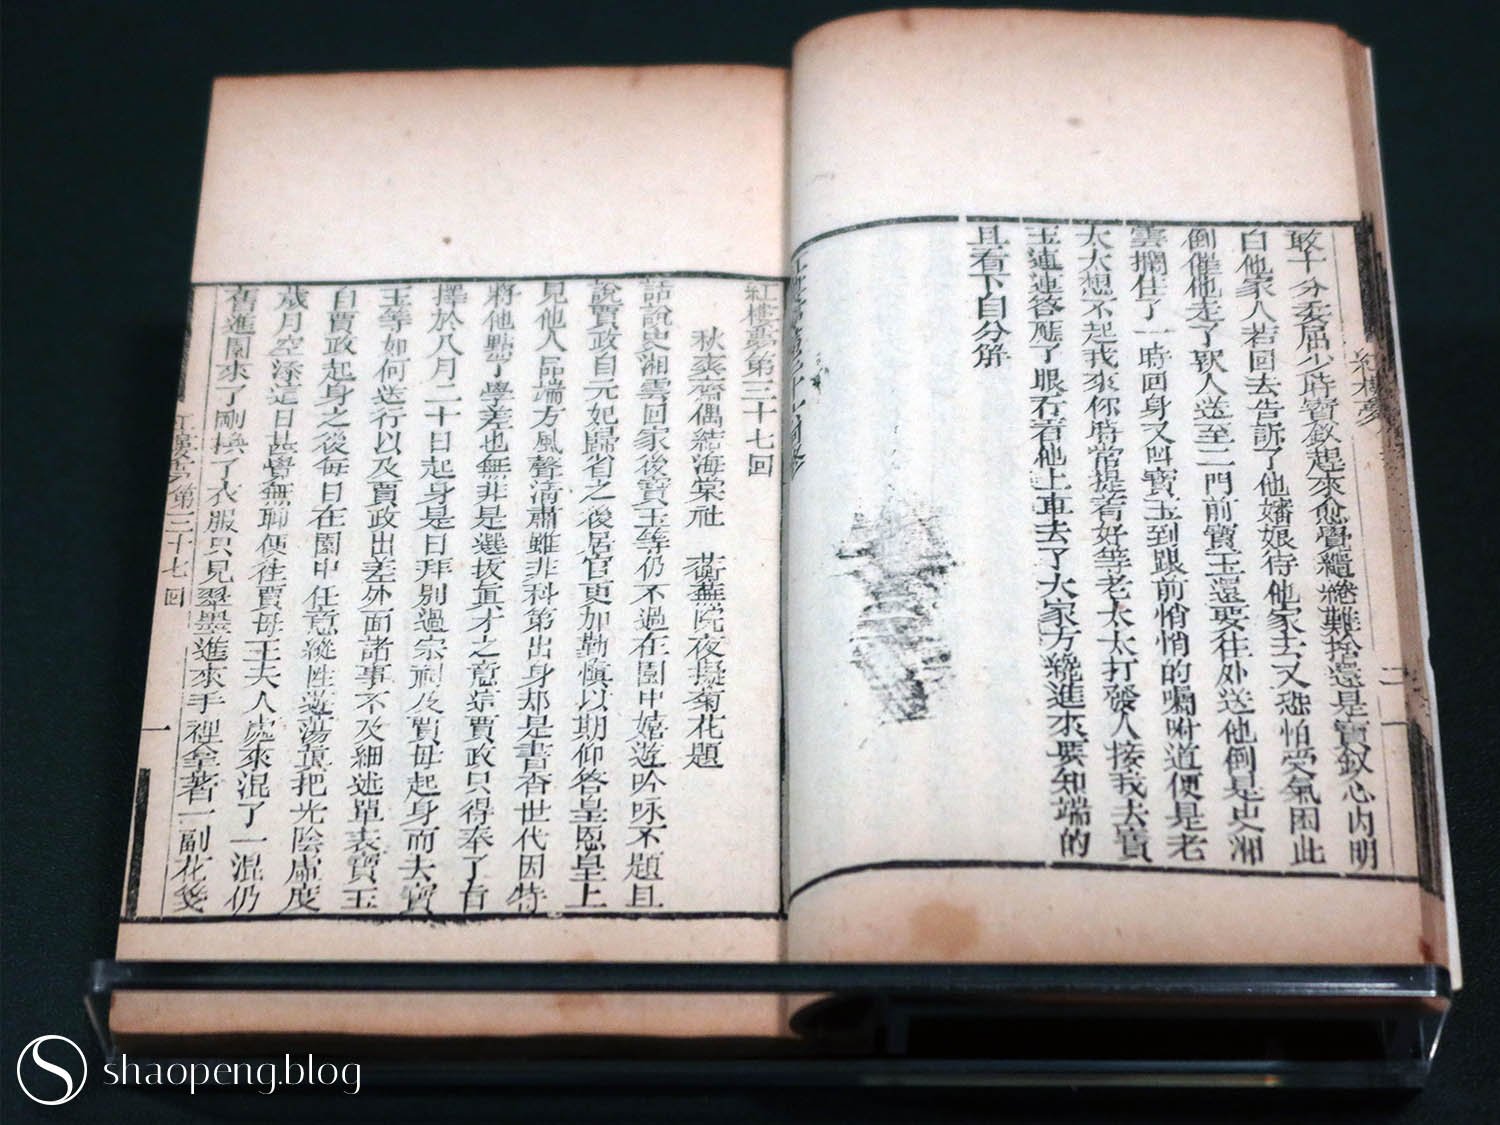 紅樓夢
敢十分委屈少時寶釵趕來愈覺繾綣難捨還是寶釵心內明
白他家人若回去告訴了他嬸娘待他家去又恐怕受氣因此
倒催他走了眾人送至二門前寶玉還要往外送他倒是史湘
雲攔住了一時回身又叫寶玉到跟前悄悄的囑咐道便是老
太太想不起我來你時常提着好等老太太打發人接我去寶
玉連連答應了眼看着他上車去了大家方纔進來要知端的
且看下自分解
紅樓夢第三十七回
秋爽齋偶結海棠社 蘅蕪院夜擬菊花題
話說史湘雲回家後寶玉等仍不過在園中嬉遊吟咏不題且
說賈政自元妃歸省之後居官更加勤慎以期仰答皇恩皇上
見他人品端方風聲清肅雖非科第出身却是書香世代因特
將他點了學差也無非是選拔真才之意這賈政只得奉了旨
擇於八月二十日起身是日拜別過宗祠及賈母起身而去寶
玉等如何送行以及賈政出差外面諸事不及細述單表寶玉
自賈政起身之後每日在園中任意縱性遊蕩真把光陰虛度
歲月空添這日甚覺無聊便往賈母王夫人處來混了一混仍
舊進園來了剛換了衣服只見翠墨進來手裡拿著一副花箋
紅樓夢第三十七回
一
shaopeng.blog